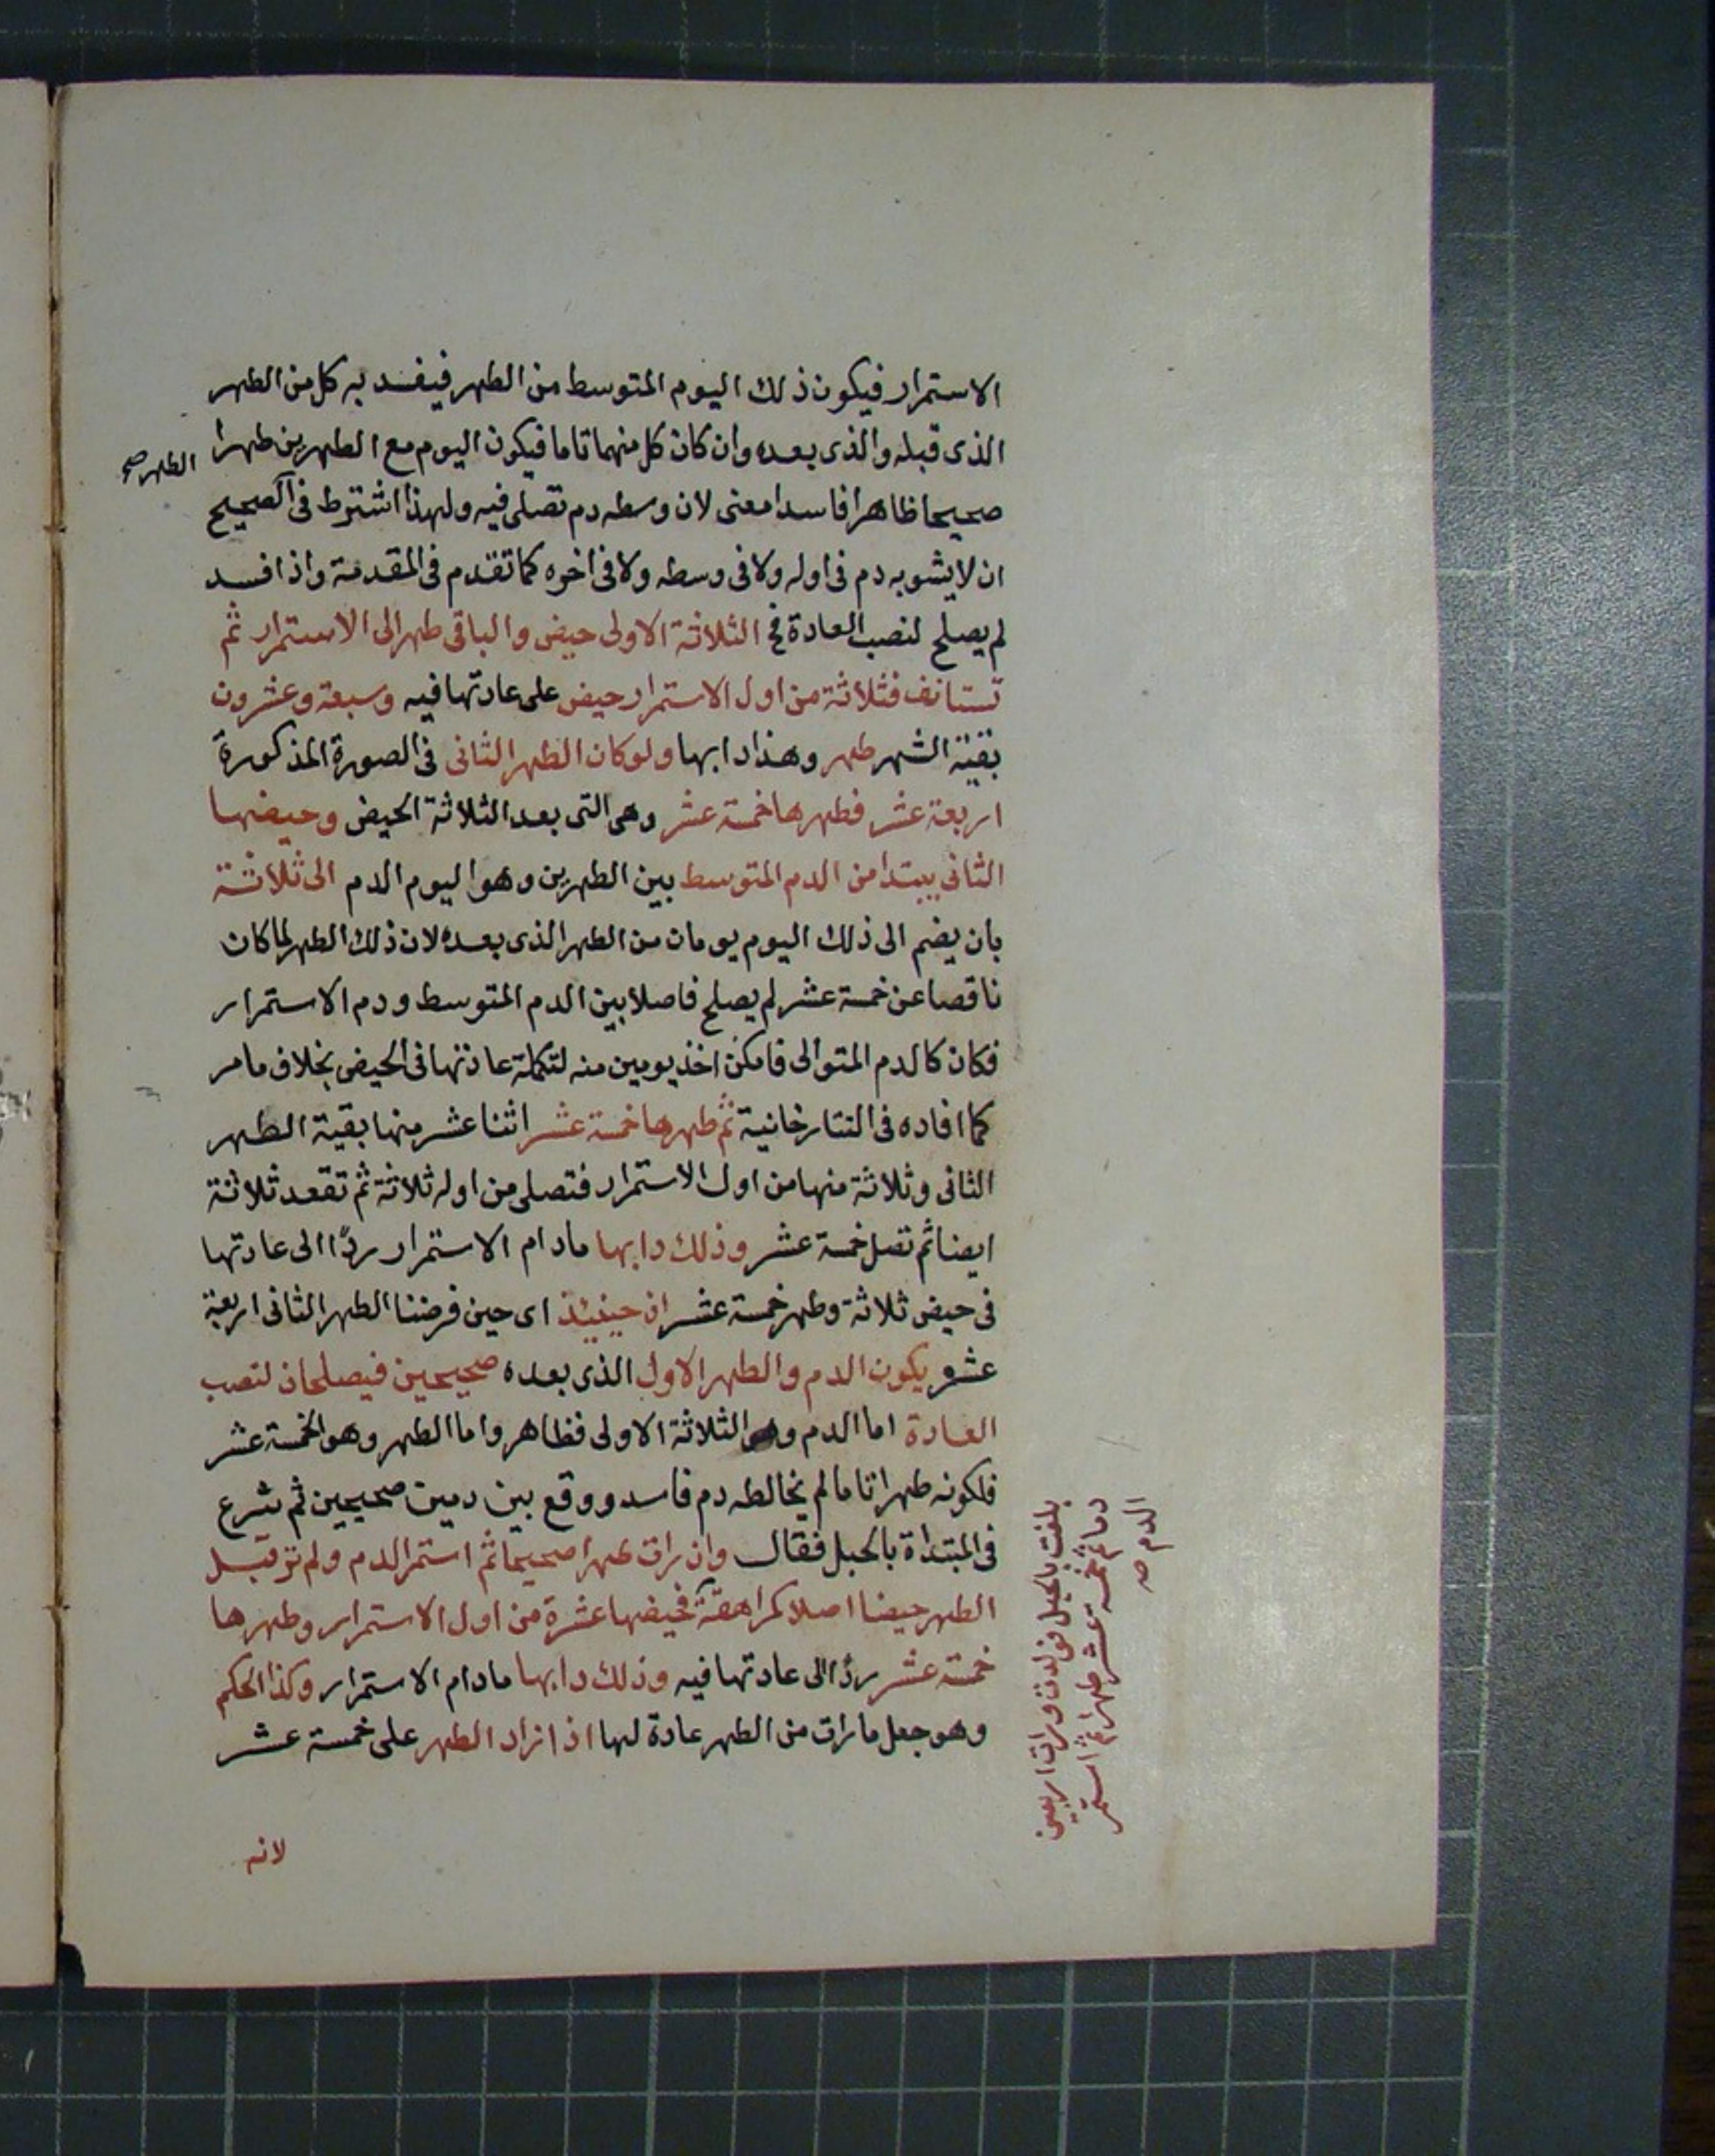 الاستمرار فيكون ذلك اليوم المتوسط من الطهر فيفسد به كل من الطهر
الذى قبله والذى بعده وان كان كل منهما تاما فيكون اليوم مع الطهرين طهرا
الطهر صح
صحيحا ظاهرا فاسدا معنى لان وسطه دم تصلى فيه ولهذا اشترط فى الصحيح
ان لا يشوبه دم فى اوله ولا فى وسطه ولا فى اخره كما تقدم فى المقدمة واذا فسد
لم يصلح لنصب العادة فح الثلاثة الاولى حيض والباقى طهر الى الاستمرار ثم
تستانف فثلاثة من اول الاستمرار حيض على عادتها فيه وسبعة وعشرون
بقية الشهر طهر وهذا دابها ولو كان الطهر الثانى فى الصورة المذكورة
اربعة عشر فطهرها خمسة عشر وهى التى بعد الثلاثة الحيض وحيضها
الثانى يبتدا من الدم المتوسط بين الطهرين وهو اليوم الدم الى ثلاثة
بان يضم الى ذلك اليوم يومان من الطهر الذى بعده لان ذلك الطهر لما كان
ناقصا عن خمسة عشر لم يصلح فاصلا بين الدم المتوسط ودم الاستمرار
فكان كالدم المتوالى فامكن اخذ يومين منه لتكملة عادتها فى الحيض بخلاف ما مر
كما افاده فى التتارخانية ثم طهرها خمسة عشر اثنا عشر منها بقية الطهر
الثانى وثلاثة منها من اول الاستمرار فتصلى من اوله ثلاثة ثم تقعد ثلاثة
ايضا ثم تصل خمسة عشر وذلك دابها مادام الاستمرار ردًا الى عادتها
فى حيض ثلاثة وطهر خمسة عشر اذ حينئذ اى حين فرضنا الطهر الثانى اربعة
عشر يكون الدم والطهر الاول الذى بعده صحيحين فيصلحان لنصب
العادة اما الدم وهو الثلاثة الاولى فظاهر واما الطهر وهو الخمسة عشر
فلكونه طهرا تاما لم يخالطه دم فاسد ووقع بين دمين صحيحين ثم شرع
فى المبتداة بالحبل فقال وان رات طهرا صحيحا ثم استمر الدم ولم تر قبل
الطهر حيضا اصلا كمراهقة فحيضها عشرة من اول الاستمرار وطهرها
خمسة عشر ردا الى عادتها فيه وذلك دابها مادام الاستمرار وكذا الحكم
وهو جعل ما رات من الطهر عادة لها اذا زاد الطهر على خمسة عشر
بلغت بالحبل فولدت ورات اربعين
دما ثم خمسة عشر طهرا ثم استمر
الدم صح
لانه